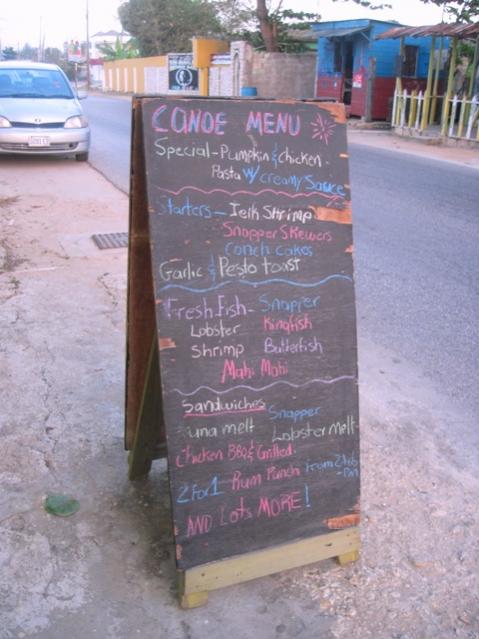 CANOE MENU
Special - Pumpkin & Chicken
Pasta W/ creamy Sauce
Starters - Jerk Shrimp
Snapper Skewers
Conch cakes
Garlic & Pesto toast
Fresh Fish - Snapper
Lobster Kingfish
Shrimp Butterfish
Mahi Mahi
Sandwiches Snapper
una melt Lobster melt
Chicken BBQ & Grilled.
2 for 1 Rum Punch From 2 to 6
PM
AND Lots MORE!